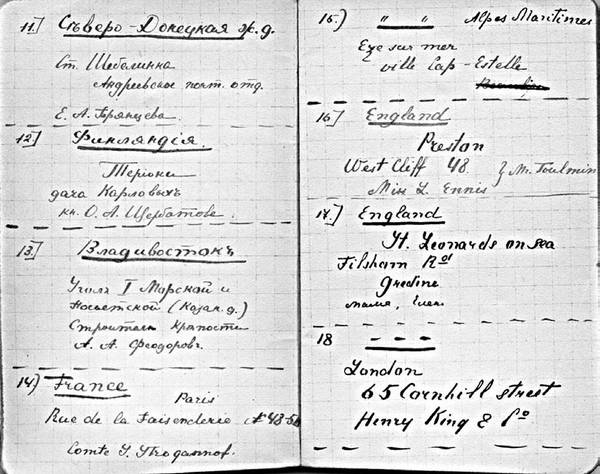 11.] Съверо-Донецкая ж.д.
Ст. Шебелинка
Андреевское почт. отд.
Е. А. Брянцева.
12] Финляндія.
Теріоки
дача Карловыхъ
кн. О. А. Щербатове.
13.] Владивостокъ
Уголъ I Морской и
Посьетской (Казак. д.)
Строитель Крѣпости
А. А. Феодоровъ.
14.] France
Paris
Rue de la Faisenderie № 48-50
Comte S. Strogannof.
15.) " " Alpes Maritimes
Eze sur mer
ville Cap-Estelle
16.] England
Preston
West Cliff 48. } Mr. Toulmin
Miss L. Ennis
17.] England
St. Leonards on sea
Filsham Rd
Gredine
мама,
18 - - -
London
65 Cornhill street
Henry King & Co